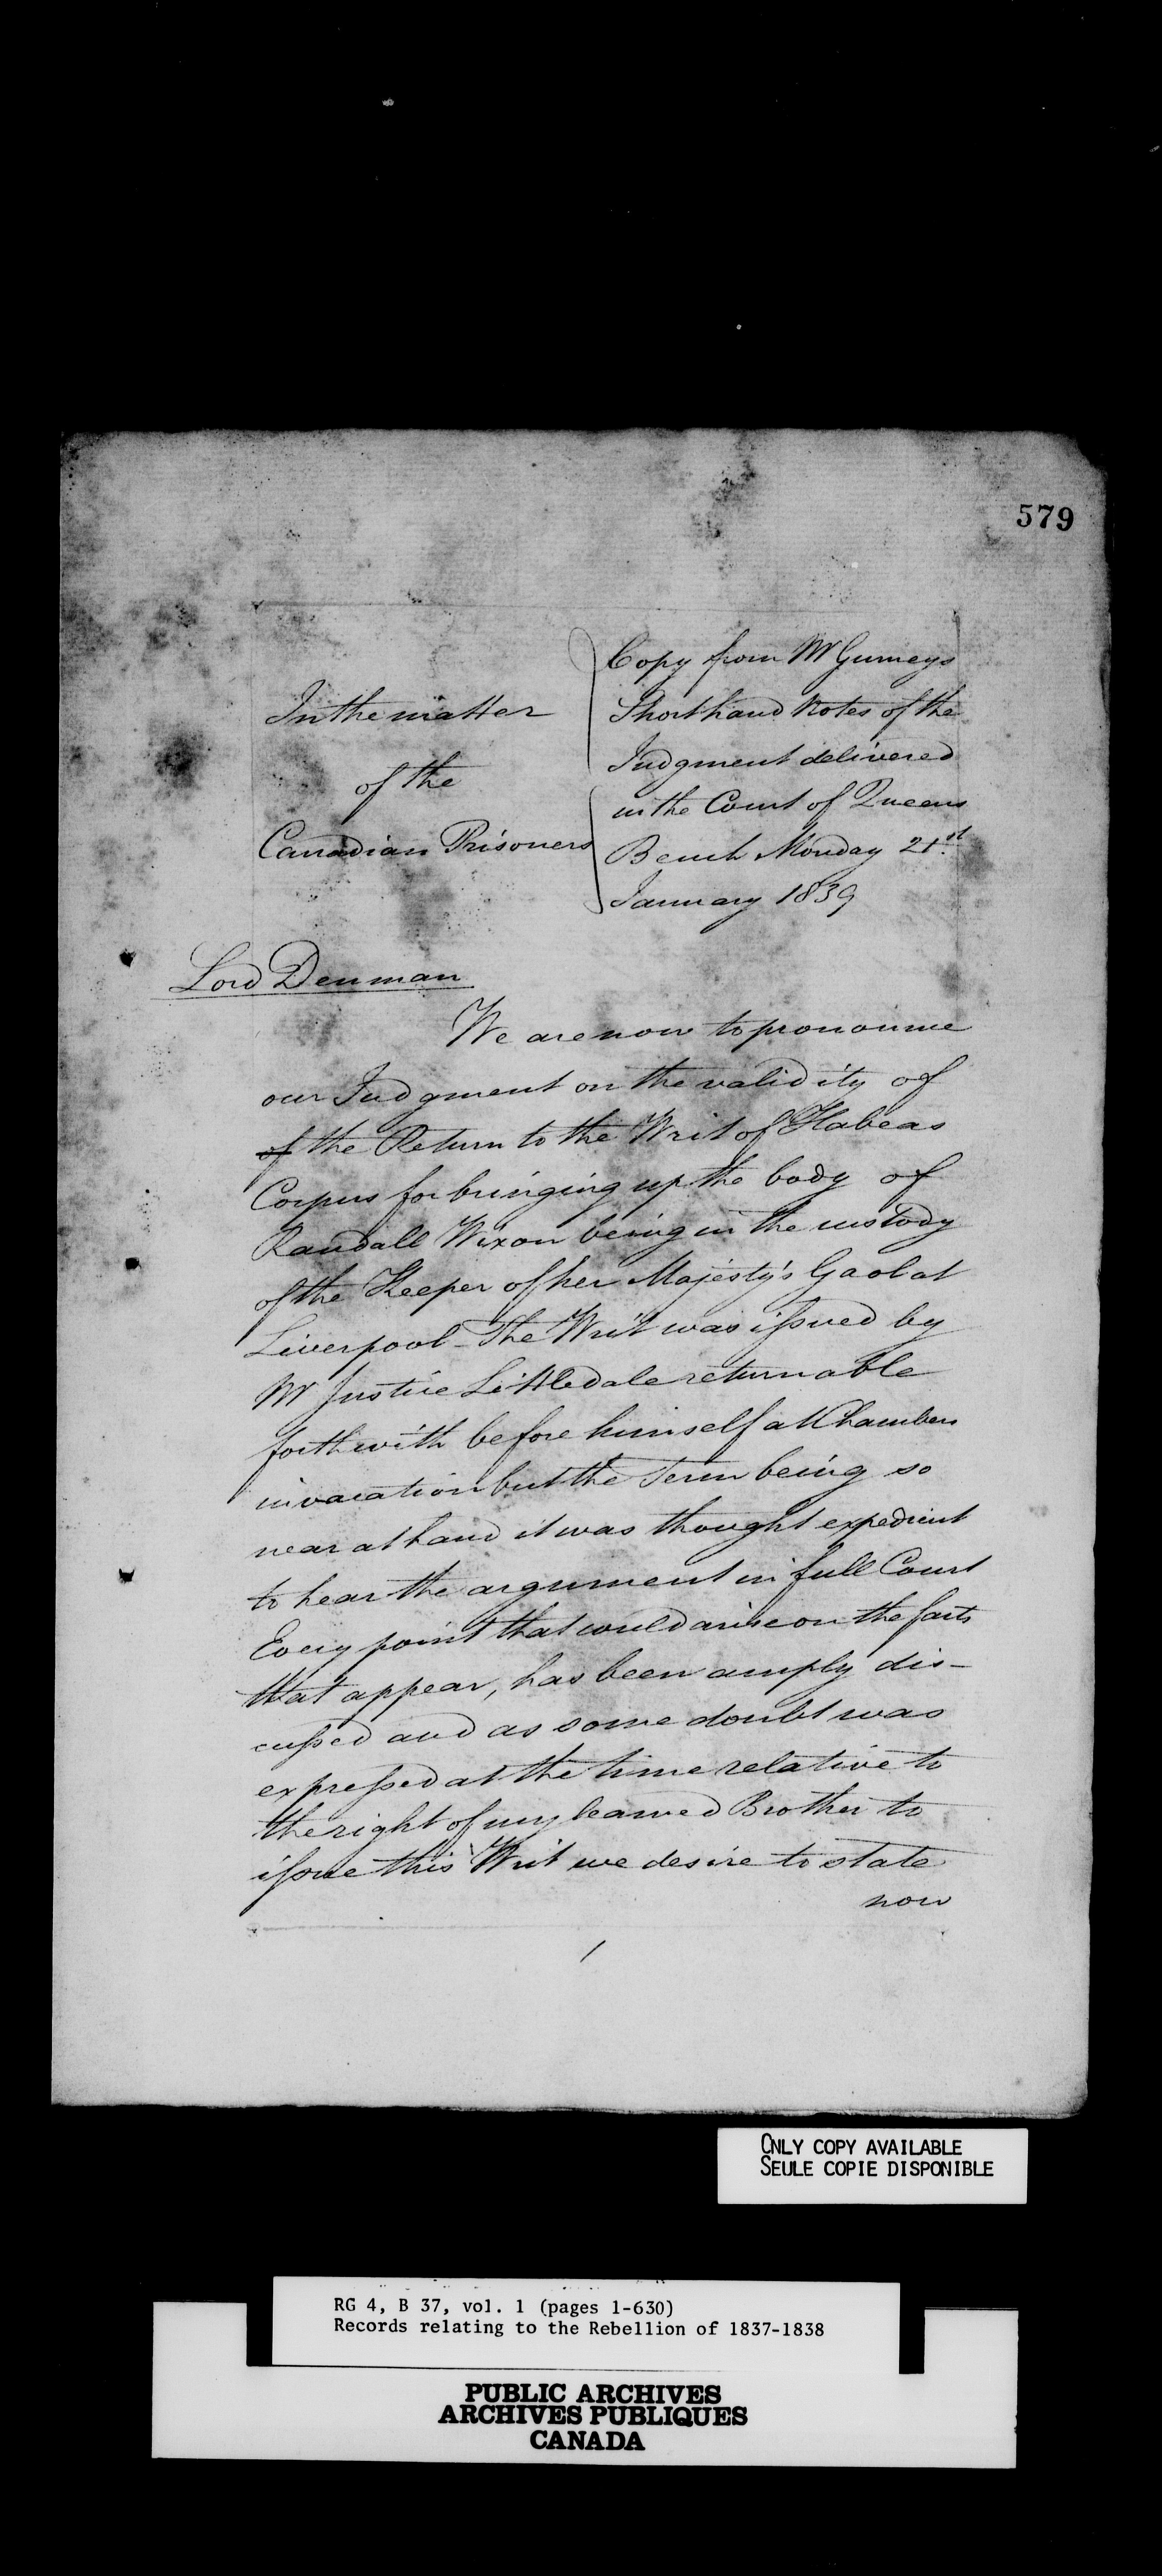 579
In the matter
of the
Canadian Prisoners
Copy from Mr Gurneys
Shorthand Notes of the
Judgment delivered
in the Court of Queens
Bench Monday 21st
January 1839
Lord Denman
We are now to pronounce
our Judgment on the validity of
of the Return to the Writ of Habeas
Corpus for bringing up the body of
Randall Wixon being in the custody
of the Keeper of her Majesty's Gaol at
Liverpool - The Writ was issued by
Mr Justice Littledale returnable
forthwith before himself at Chambers
in vacation but the Term being so
near at hand it was thought expedient
to hear the argument in full Court
Every point that could arise on the facts
that appear, has been amply dis-
cussed and as some doubt was
expressed at the time relative to
the right of my learned Brother to
issue this Writ we desire to state
now
1
ONLY COPY AVAILABLE
SEULE COPIE DISPONIBLE
RG 4, B 37, vol. 1 (pages 1-630)
Records relating to the Rebellion of 1837-1838
PUBLIC ARCHIVES
ARCHIVES PUBLIQUES
CANADA